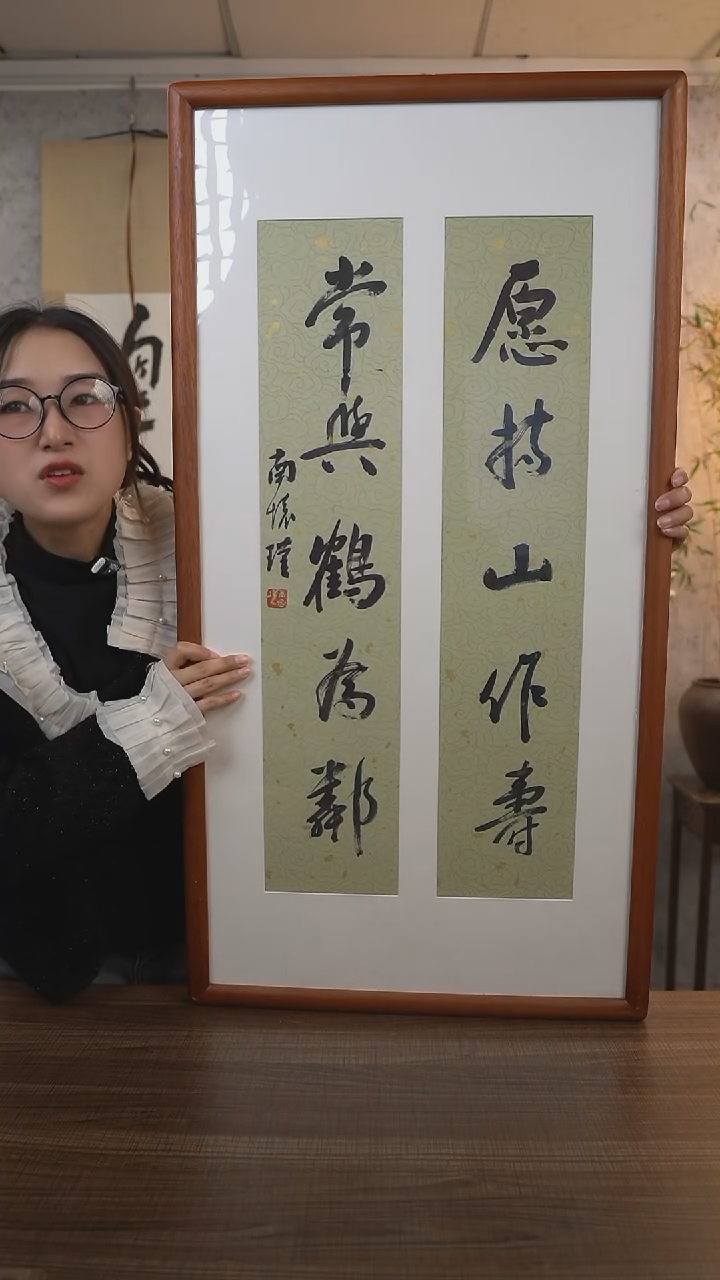 愿持山作壽
常與鶴為鄰
南懷瑾